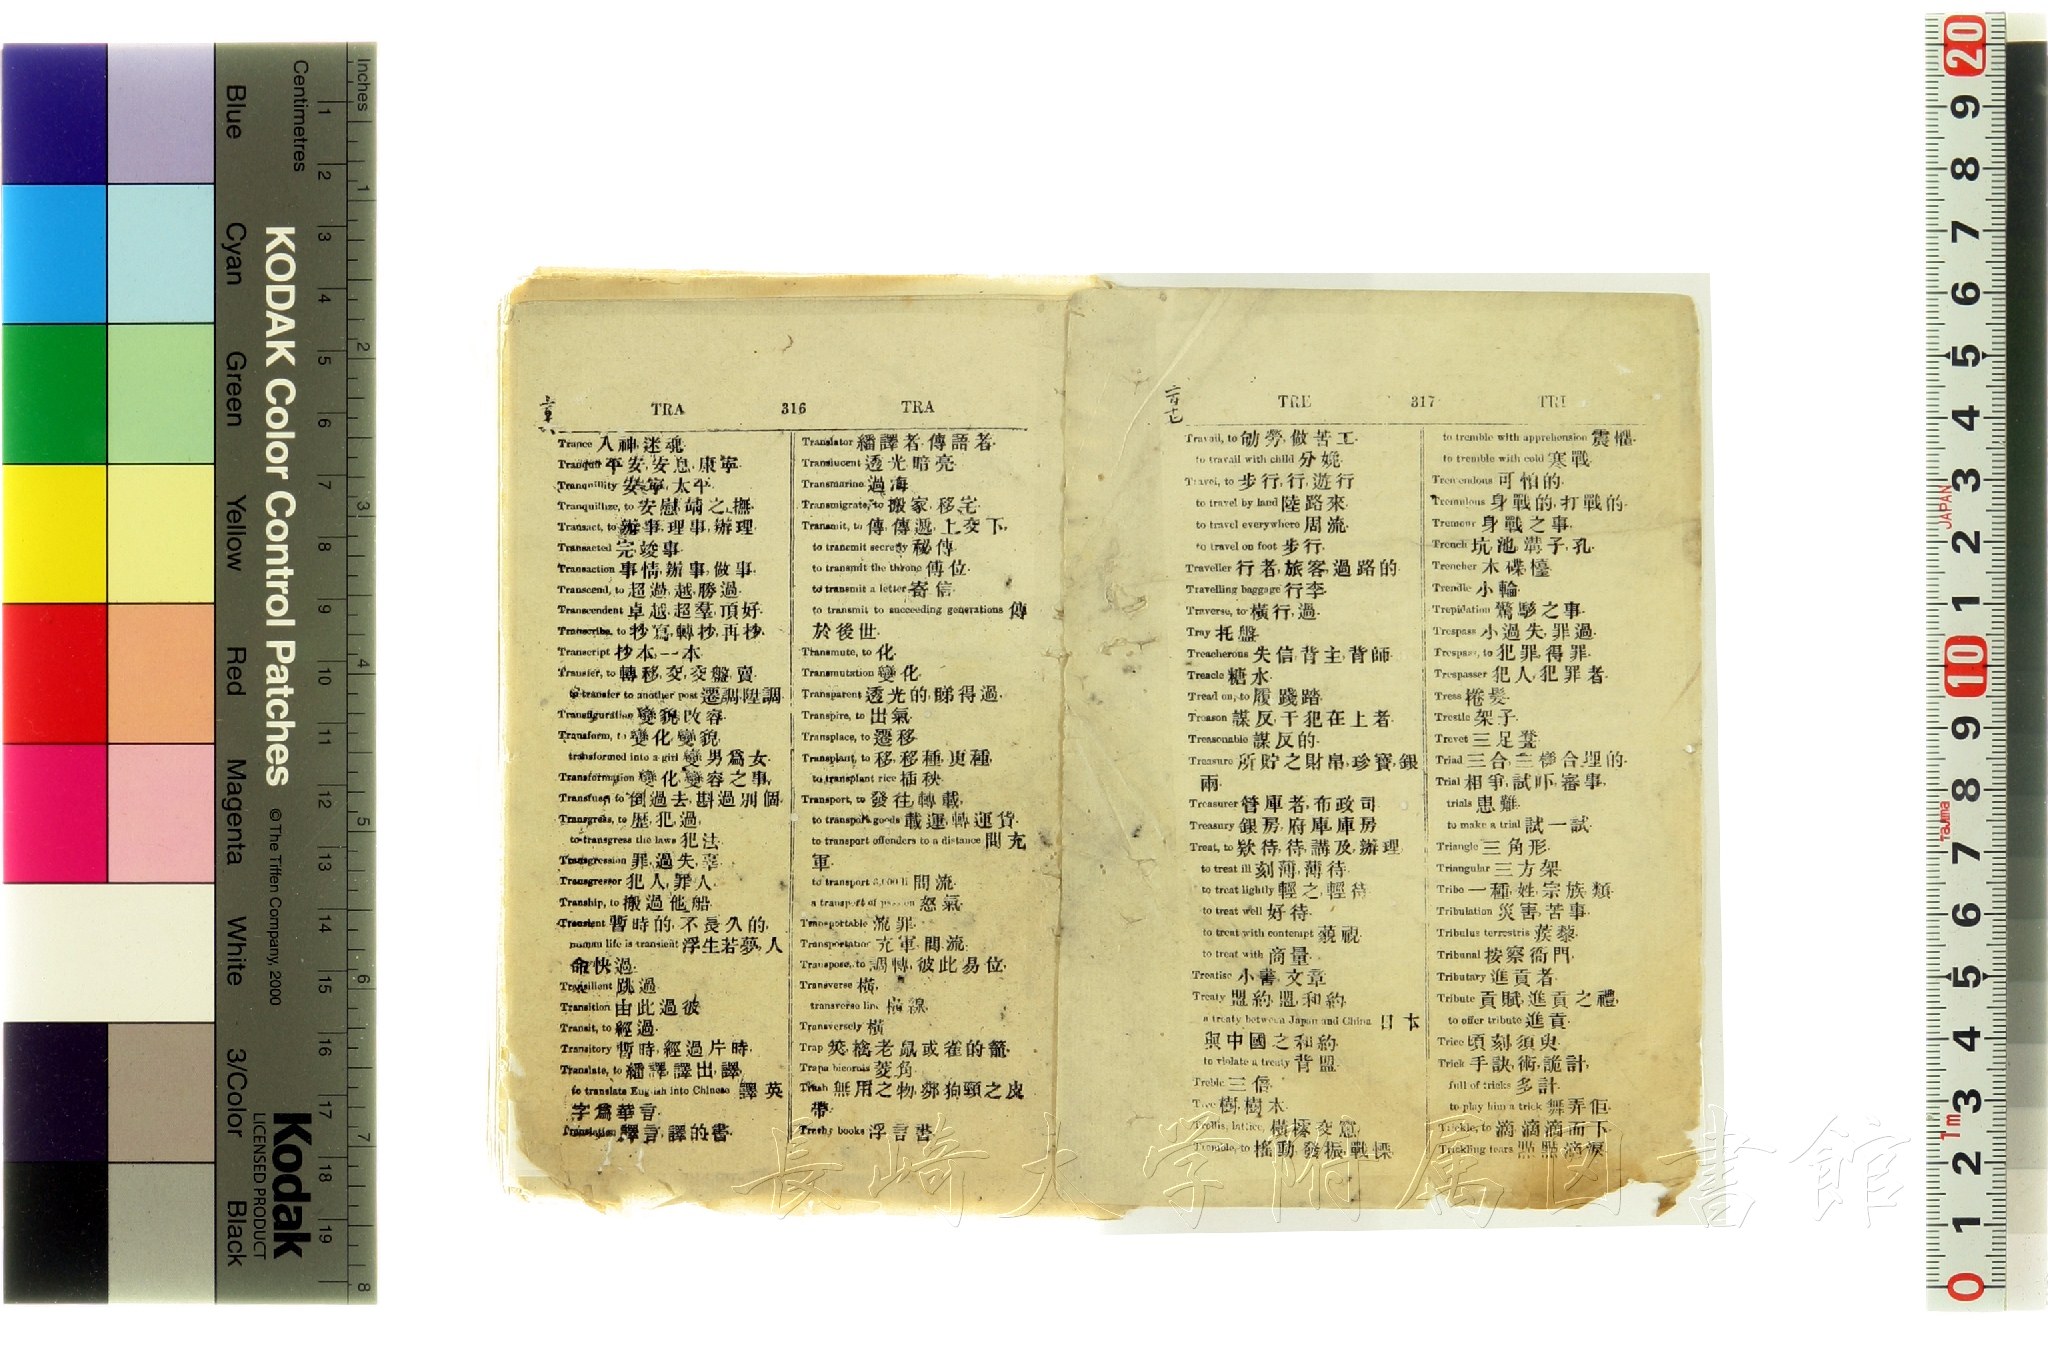 TRA 316 TRA
Trance 入神,迷魂.
Tranquil 平安,安息,康寧.
Tranquillity 安寧,太平.
Tranquillize, to 安慰,靖之,撫.
Transact, to 辦事,理事,辦理
Transacted 完竣事.
Transaction 事情,辦事,做事.
Transcend, to 超過,越,勝過.
Transcendent 卓越,超羣,頂好.
Transcribe, to 抄寫,轉抄,再抄.
Transcript 抄本,一本.
Transfer, to 轉移,交,交盤,賣.
to transfer to another post 遷調,陞調.
Transfiguration 變貌,改容.
Transform, to 變化,變貌
transformed into a girl 變男爲女.
Transformation 變化,變容之事,
Transfuse, to 倒過去,斟過別個.
Transgress, to 歷,犯,過,
to transgress the laws 犯法.
Transgression 罪,過失,辜.
Transgressor 犯人,罪人.
Tranship, to 搬過他船.
Transient 暫時的,不長久的,
human life is transient 浮生若夢,人
命快過.
Transilient 跳過
Transition 由此過彼
Transit, to 經過.
Transitory 暫時,經過片時.
Translate, to 繙譯,譯出,譯,
to translate English into Chinese 譯英
字爲華言.
Translation 譯言,譯的書.
Translator 繙譯者,傳語者.
Translucent 透光,暗亮.
Transmarine 過海.
Transmigrate, to 搬家,移宅.
Transmit, to 傳,傳遞,上交下,
to transmit secretly 秘傳.
to transmit the throne 傳位.
to transmit a letter 寄信.
to transmit to succeeding generations 傳
於後世.
Transmute, to 化.
Transmutation 變化.
Transparent 透光的,睇得過.
Transpire, to 出氣.
Transplace, to 遷移.
Transplant, to 移,移種,更種,
to transplant rice 插秧.
Transport, to 發往,轉載,
to transport goods 載運,轉運貨.
to transport offenders to a distance 問充
軍.
to transport 3,000 li 問流.
a transport of passion 怒氣.
Transportable 流罪.
Transportation 充軍,問流.
Transpose, to 調轉,彼此易位.
Transverse 橫,
transverse line 橫線.
Transversely 橫
Trap 筴,檎老鼠或雀的籠.
Trapa bicornis 菱角.
Trash 無用之物,綁狗頸之皮
帶.
Trashy books 浮言書.
三百十七
TRE 317 TRI
Travail, to 劬勞,做苦工.
to travail with child 分娩.
Travel, to 步行,行,遊行
to travel by land 陸路來.
to travel everywhere 周流.
to travel on foot 步行.
Traveller 行者,旅客,過路的.
Travelling baggage 行李.
Traverse, to 橫行,過.
Tray 托盤.
Treacherous 失信,背主,背師.
Treacle 糖水.
Tread on, to 履,踐踏.
Treason 謀反,干犯在上者.
Treasonable 謀反的.
Treasure 所貯之財帛,珍寶,銀
兩.
Treasurer 管庫者,布政司
Treasury 銀房,府庫,庫房
Treat, to 欵待,待,講及,辦理,
to treat ill 刻薄,薄待.
to treat lightly 輕之,輕待
to treat well 好待.
to treat with contempt 藐視.
to treat with 商量.
Treatise 小書,文章
Treaty 盟約,盟,和約,
a treaty between Japan and China 日本
與中國之和約.
to violate a treaty 背盟.
Treble 三倍.
Tree 樹,樹木.
Trellis, lattice, 橫檬交窻.
Tremble, to 搖動,發振,戰慄,
to tremble with apprehension 震懼.
to tremble with cold 寒戰.
Tremendous 可怕的.
Tremulous 身戰的,打戰的.
Tremour 身戰之事.
Trench 坑,池,溝子,孔.
Trencher 木碟檯
Trendle 小輪.
Trepidation 驚駭之事.
Trespass 小過失,罪過.
Trespass, to 犯罪,得罪.
Trespasser 犯人,犯罪者.
Tress 捲髮.
Trestle 架子.
Trevet 三足凳.
Triad 三合,三樣合埋的.
Trial 相爭,試吓,審事,
trials 患難.
to make a trial 試一試.
Triangle 三角形.
Triangular 三方架.
Tribe 一種,姓,宗族,類.
Tribulation 災害,苦事.
Tribulus terrestris 蒺藜.
Tribunal 按察衙門.
Tributary 進貢者.
Tribute 貢賦,進貢之禮,
to offer tribute 進貢.
Trice 頃刻,須臾.
Trick 手訣,術,詭計,
full of tricks 多計.
to play him a trick 舞弄佢.
Trickle, to 滴,滴滴而下.
Trickling tears 點點滴淚.
長崎大学附属図書館